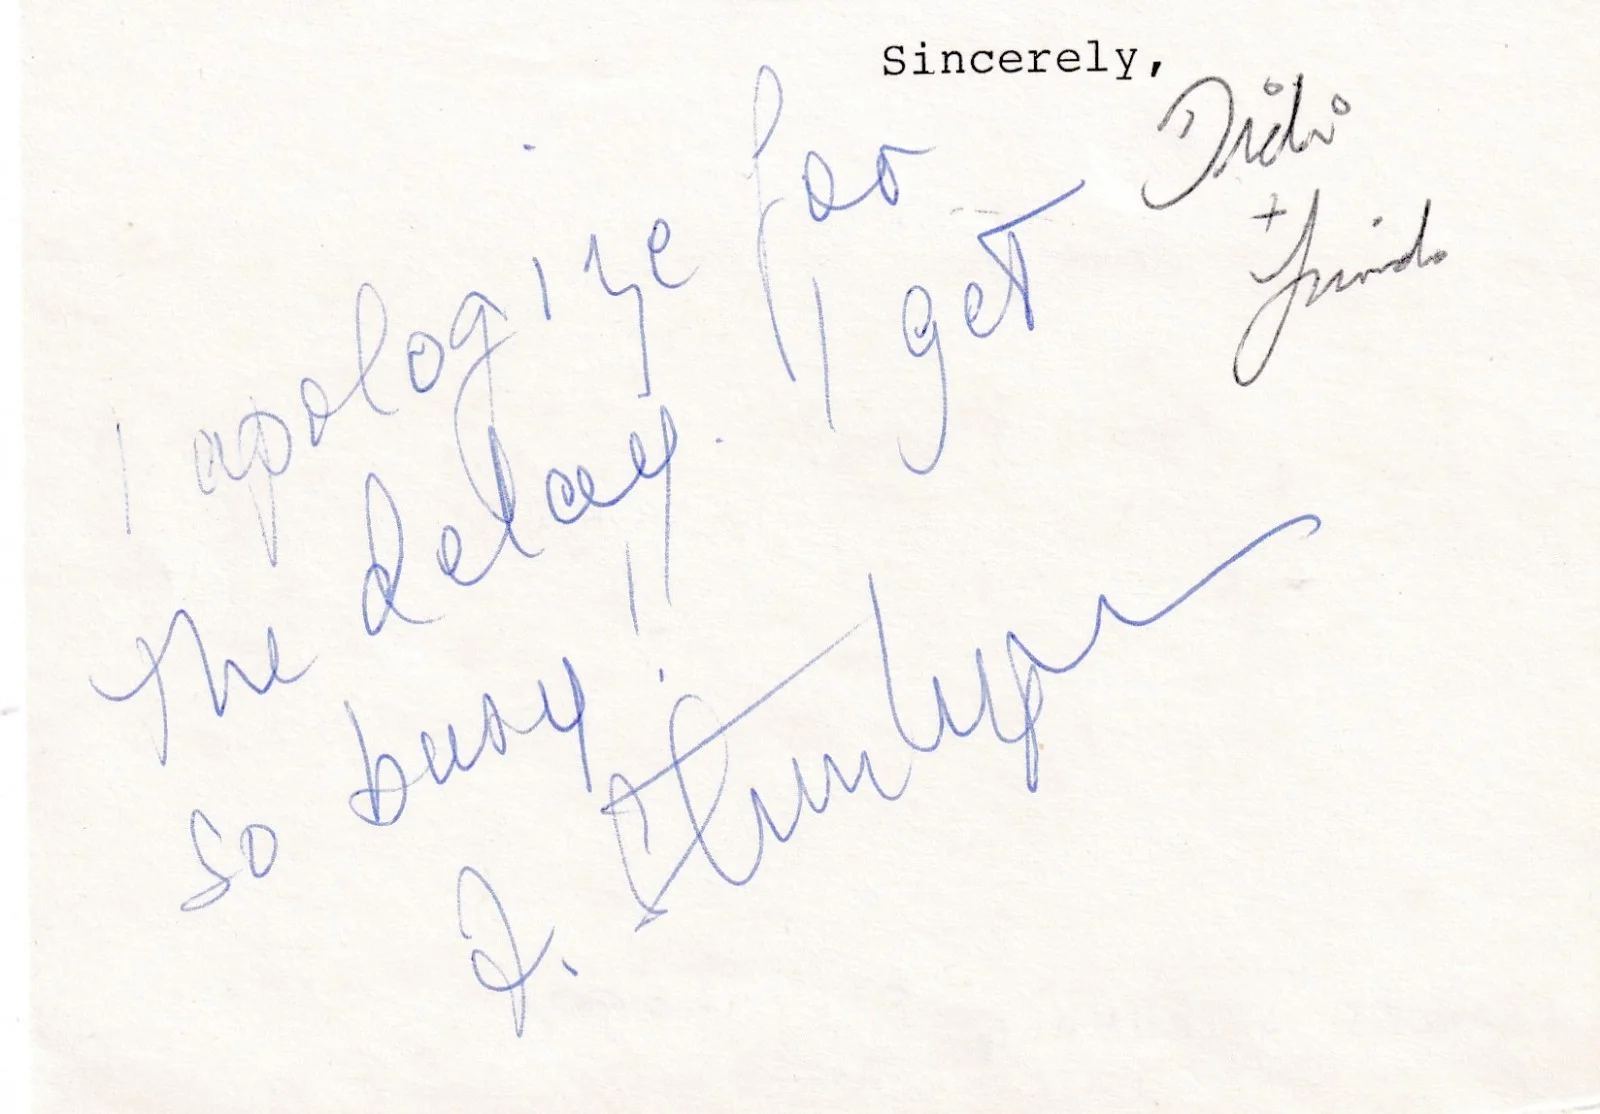 Sincerely,
Didi
+ friends
I apologize for
the delay. I get
so busy!
J.